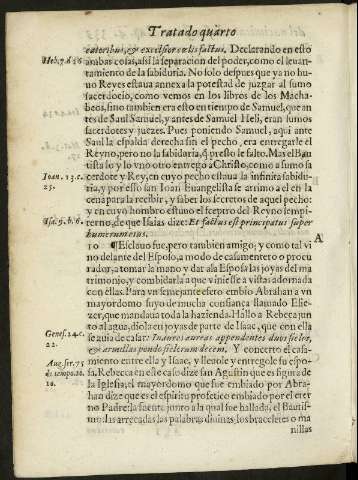 Tratado quarto
catoribus, & excelsior cœlis factus. Declarando en esto
Heb. 7. d. 26
ambas cosas, assi la separacion del poder, como el leuan-
tamiento de la sabiduria. No solo despues que ya no hu-
uo Reyes estaua annexa la potestad de juzgar al sumo
sacerdocio, como vemos en los libros de los Macha-
beos, sino tambien era esto en tiempo de Samuel, que an-
tes de Saul Samuel, y antes de Samuel Heli, eran sumos
sacerdotes y juezes. Pues poniendo Samuel, aqui ante
Saul la espalda derecha sin el pecho, era entregarle el
Reyno, pero no la sabiduria, q̃ presto le falto. Mas el Bau
tista lo y lo vno otro entregò a Christo, como a sumo sa
Ioan. 13. c.
25.
cerdote y Rey, en cuyo pecho estaua la infinita sabidu-
ria, y por esso san Ioan Euangelista se arrimo a el en la
cena para le recibir, y saber los secretos de aquel pecho:
y en cuyo hombro estuuo el sceptro del Reyno sempi-
Isa. 9. b. 6.
terno, de que Isaias dize: Et factus est principatus super
humerum eius.
A
10 ¶ Esclauo fue, pero tambien amigo; y como tal vi
no delante del Esposo, a modo de casamentero o procu
rador, a tomar la mano y dar ala Esposa las joyas del ma
trimonio, y combidarla a que viniesse a vistas adornada
con ellas. Para vn semejante efeto embio Abraham a vn
mayordomo suyo de mucha confiança llamado Elie-
zer, que mandaua toda la hazienda. Hallo a Rebeca jun
to al agua, diola en joyas de parte de Isaac, que con ella
Genes. 24. c.
22.
se auia de casar: Inaures aureas appendentes duos siclos,
& armillas pondo siclorum decem. Y concerto el casa-
miento entre ella y Isaac, y lleuole y entregole su espo-
Aug. ser. 75
de tempo. to.
10.
sa. Rebeca en este caso dize san Agustin que es figura de
la Iglesia, el mayordomo que fue embiado por Abra-
han dize que es el espiritu profetico embiado por el eter
no Padre: la fuente junto a la qual fue hallada, el Bautis-
mo: las arrecadas las palabras diuinas, los braceletes o ma
nillas